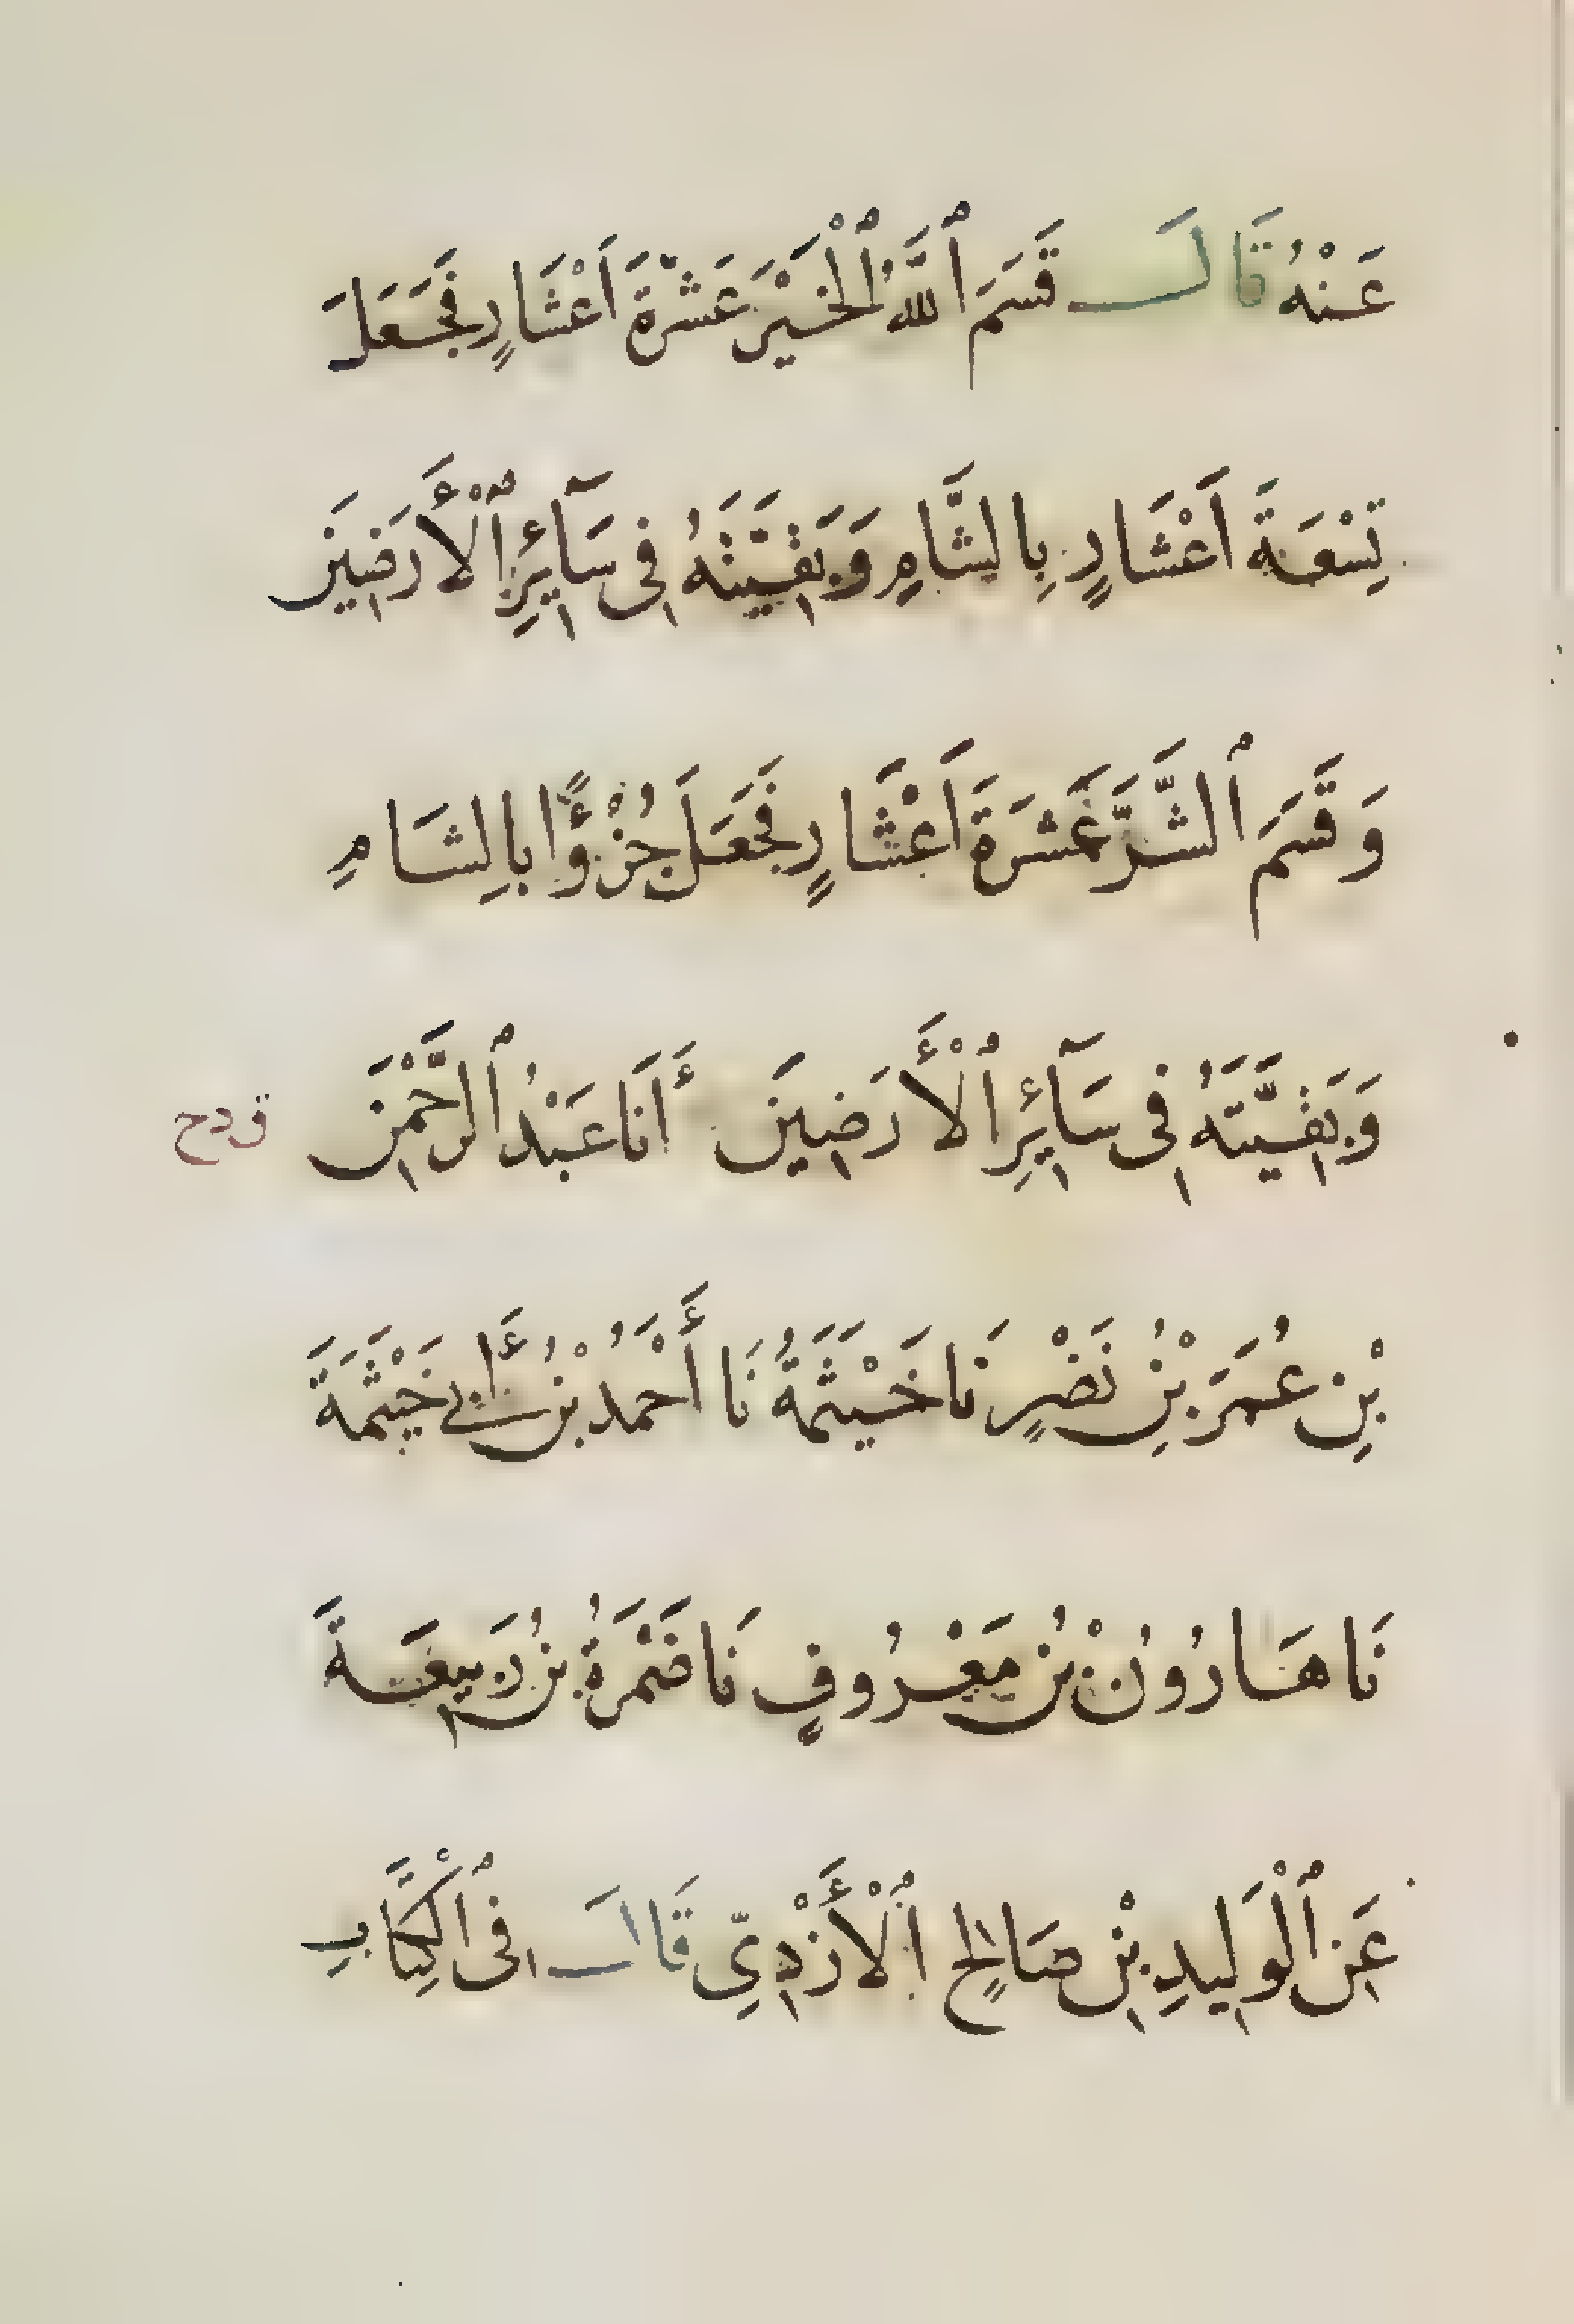 عَنْهُ قَالَ قَسَمَ ٱللَّهُ ٱلْخَيْرَ عَشَرَةَ اَعْشَارٍ فَجَعَلَ
تِسْعَةَ اَعْشَارٍ بِالشَّامِ وَبَقِيَّتَهُ فِى سَآئِرِ ٱلْأَرَضِينَ
وَقَسَمَ ٱلشَّرَّ عَشَرَةَ اَعْشَارٍ فَجَعَلَ جُزْؤًا بِالشَامِ
وَبَقِيَّتَهُ فِى سَآئِرِ ٱلْأَرَضِينَ أَنَا عَبْدُ ٱلرَّحْمَنِ
بْنِ عُمَرَ بْنِ نَصْرٍ نَا خَيْثَمَةُ نَا أَحْمَدُ بْنُ أَبِي خَيْثَمَةَ
نَا هَارُونُ بْنُ مَعْرُوفٍ نَا ضَمْرَةُ بْنُ رَبِيعَةَ
عَنِ ٱلْوَلِيدِ بْنِ صَالِحٍ ٱلْأَزْدِيِّ قَالَ فِى ٱلْكِتَابِ